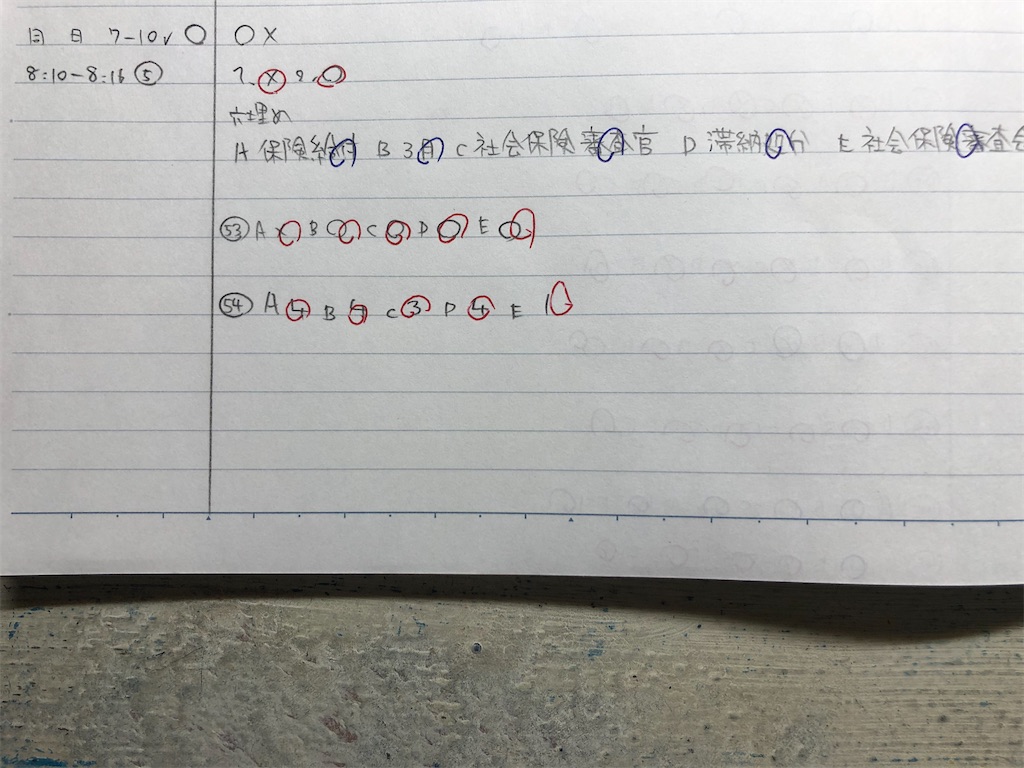 月 日 7-10✓ ○ ○ ×
8:10-8:16 ⑤ 1. × 2. ○
穴埋め
A 保険給付 B 3月 C 社会保険審査官 D 滞納処分 E 社会保険審査会
53 A × B ○ C D ○ E ○
54 A 4 B 4 C 3 D 4 E 1